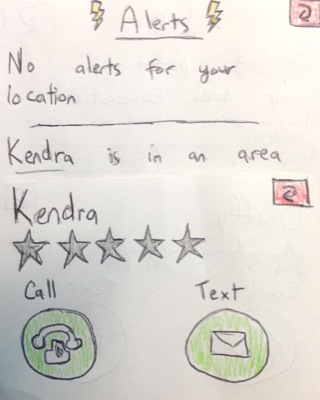 Alerts
No alerts for your
location
Kendra is in an area
Kendra
Call Text